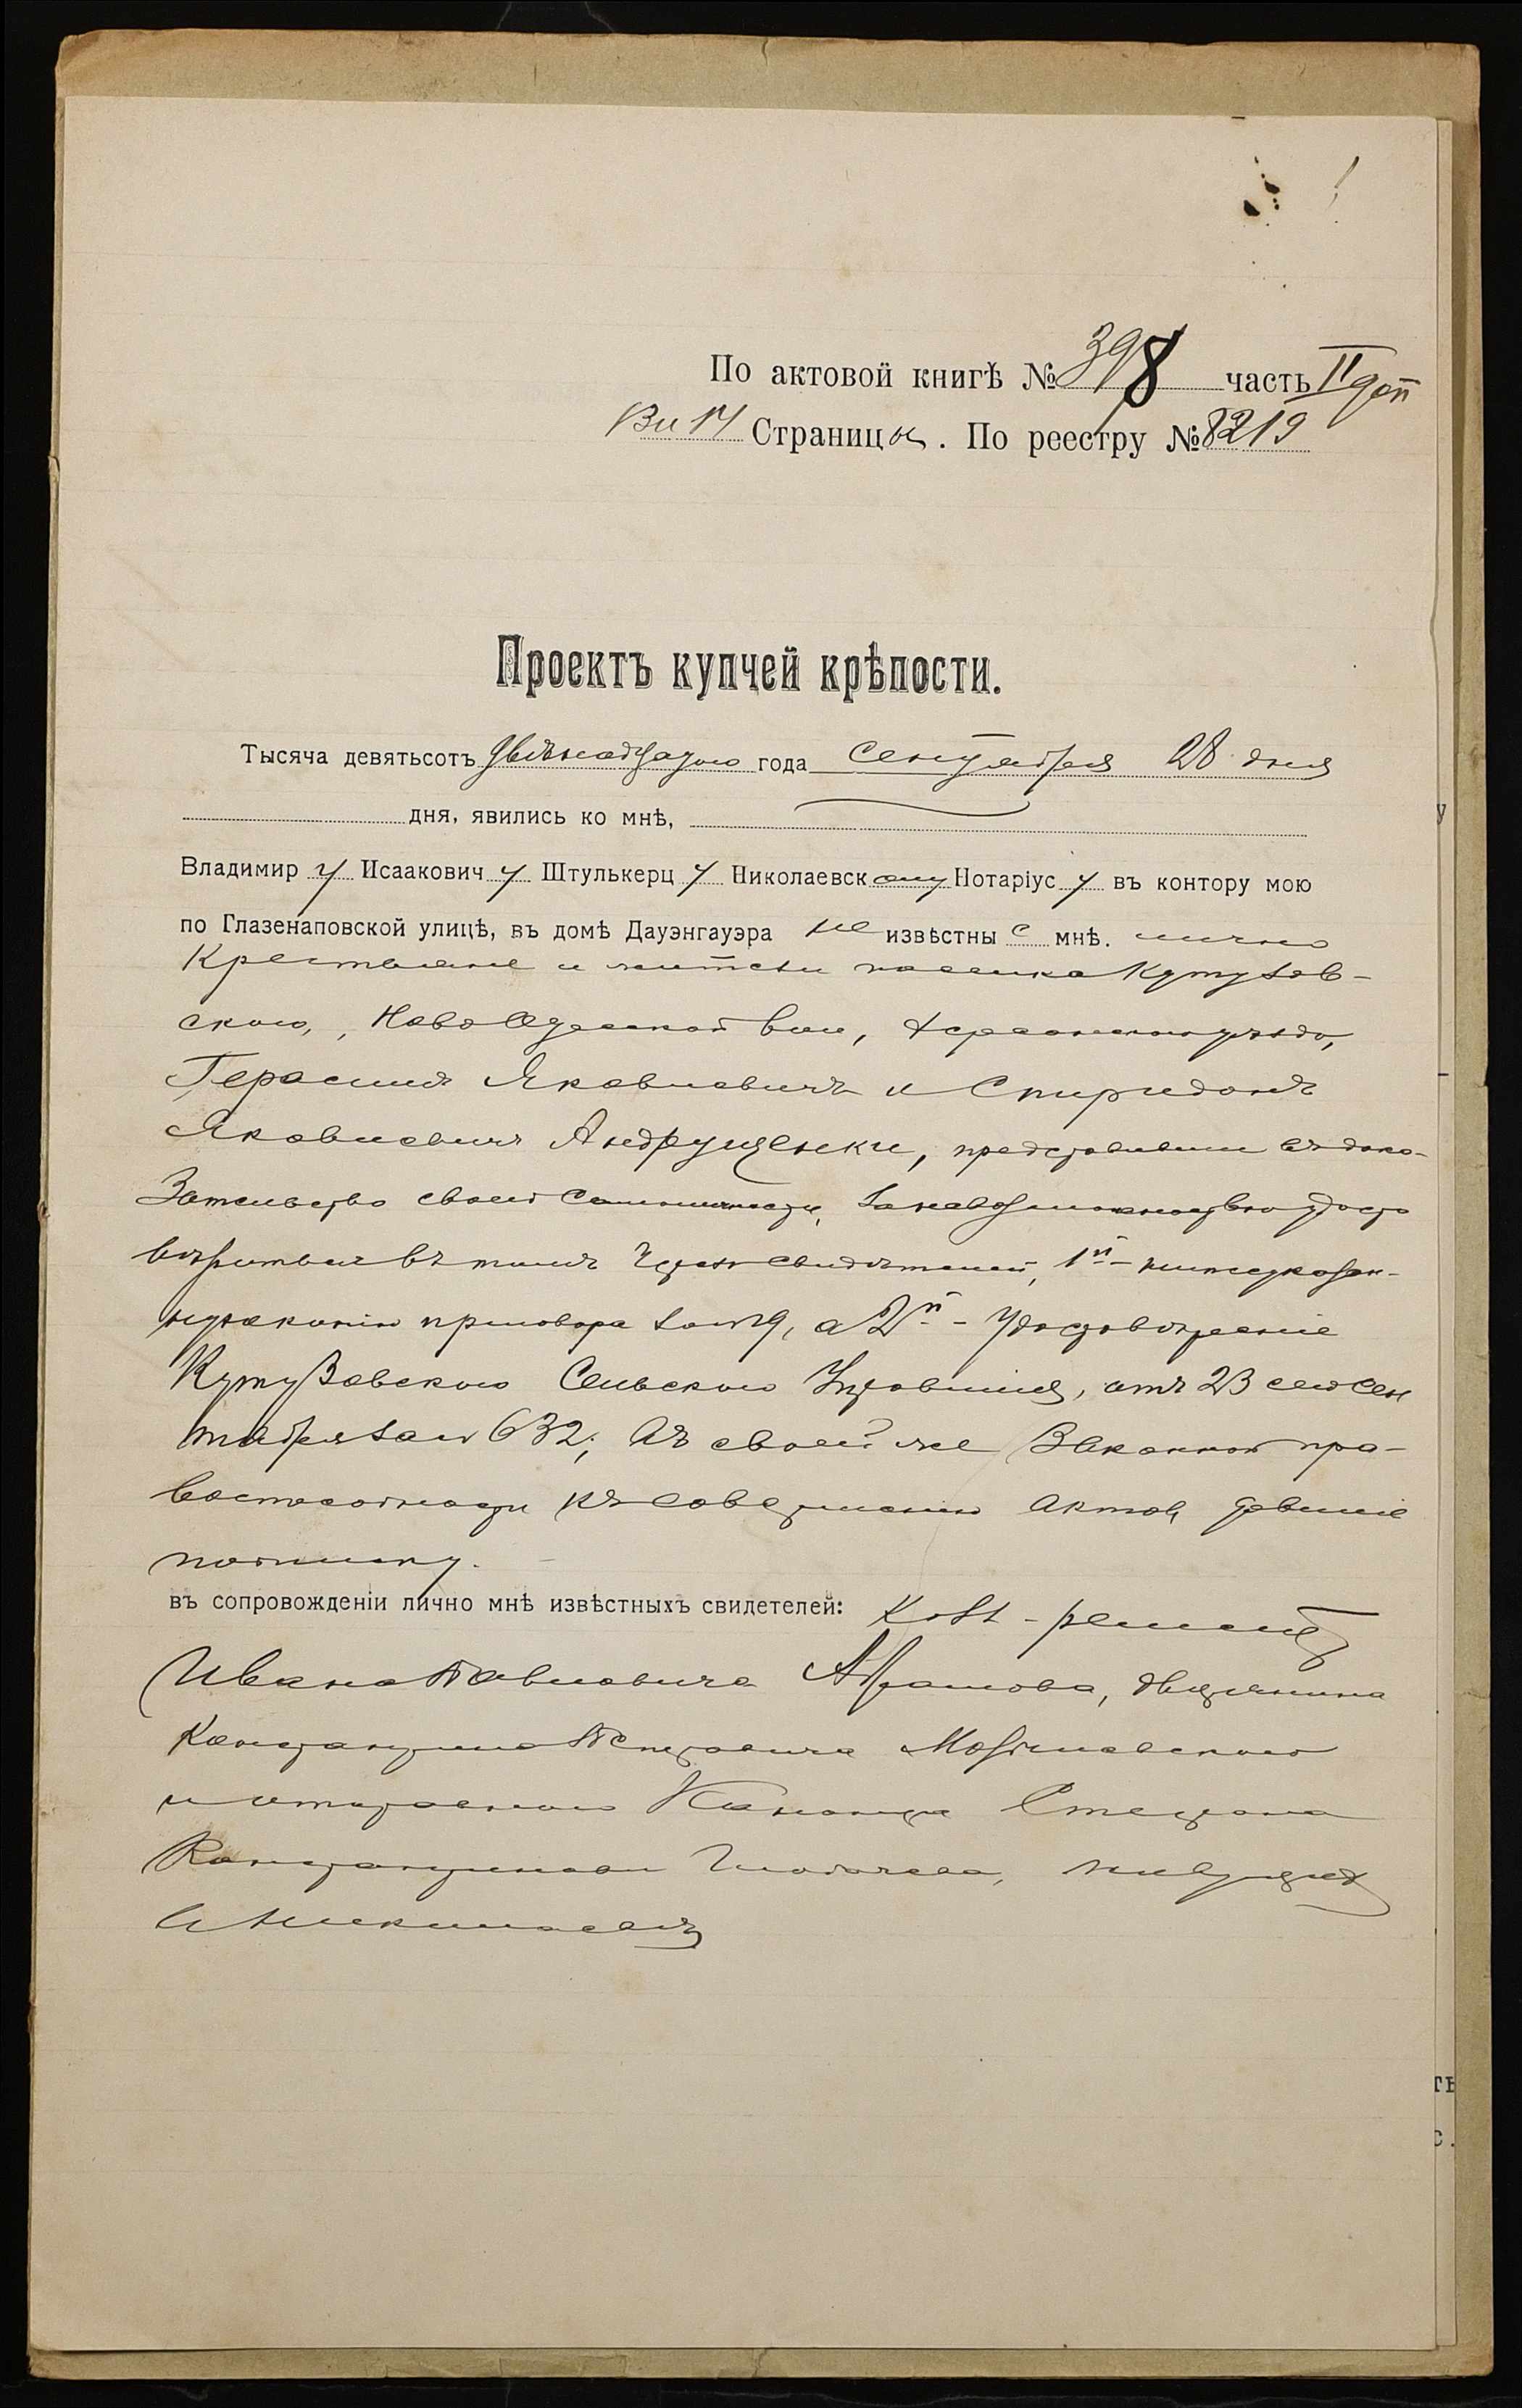 По актовой книгѣ № 398 часть II доп
13 и 14 Страницы. По реестру № 8219
Проектъ купчей крѣпости.
Тысяча девятьсотъ двѣнадцатого года Сентября 28 дня
дня, явились ко мнѣ,
Владимир у Исаакович у Штулькерц у Николаевск ому Нотаріус у въ контору мою
по Глазенаповской улицѣ, въ домѣ Дауэнгауэра не извѣстны е мнѣ. лично
Крестьяне и жители поселка Кутузов-
скаго, Ново Одесской вол, Херсонскаго уѣзда,
Герасимъ Яковлевичъ и Спиридонъ
Яковлевичъ Андрущенки, представившіе въ дока-
зательство своей самоличности, за невозможностью удосто
вѣриться въ томъ чрезъ свидѣтелей, 1й-
приговора за № 9, а 2й - Удостовѣреніе
Кутузовскаго Сельскаго Управленія, отъ 23 сего Сен
тября за № 632; въ своей же законной пра-
воспособности къ совершенію актовъ давшіе
подписку.
въ сопровожденіи лично мнѣ извѣстныхъ свидетелей:
Ивана Павловича Абрамова, дворянина
Константина Петровича
и Степана
Константинова
въ Николаевѣ